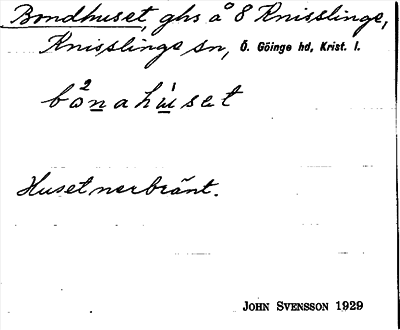 Bondhuset, ghs å 8 Knisslinge,
Knisslinge sn, Ö. Göinge hd, Krist. l.
bo²nahu̇set
Huset nerbränt.
JOHN SVENSSON 1929